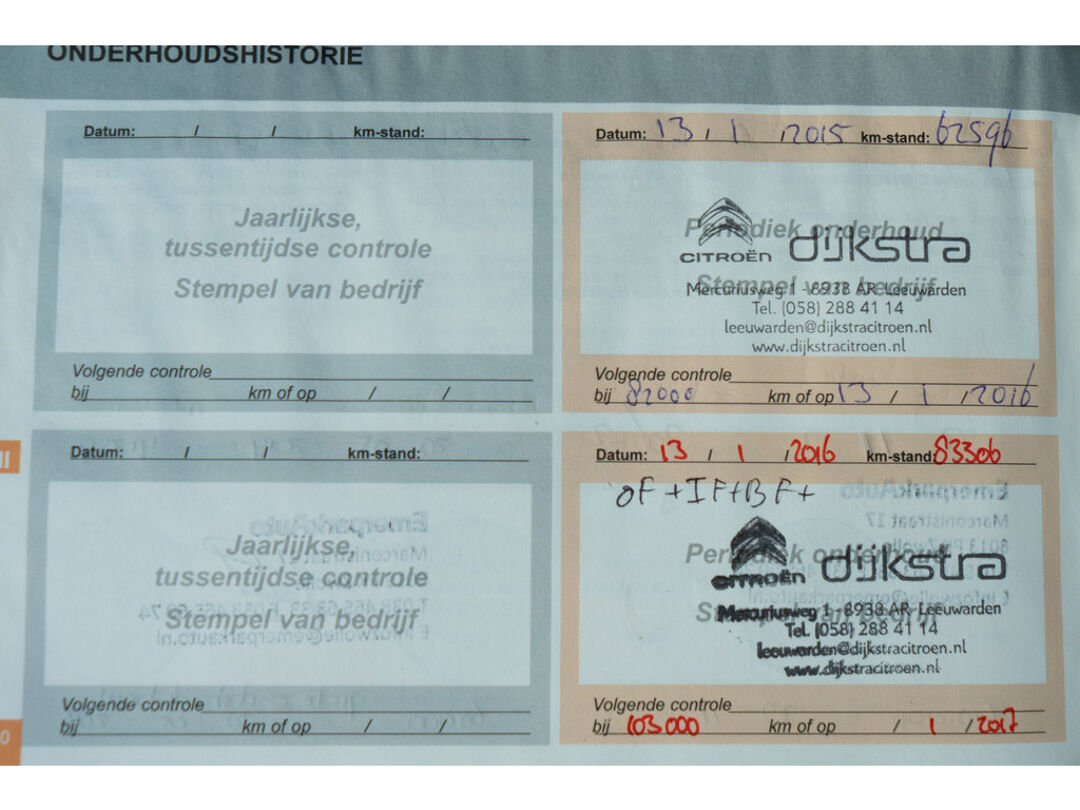 ONDERHOUDSHISTORIE
Datum: / / km-stand:
Jaarlijkse,
tussentijdse controle
Stempel van bedrijf
Volgende controle
bij km of op / /
Datum: 13 / 1 / 2015 km-stand: 62596
Periodiek onderhoud
CITROËN dijkstra
Stempel van bedrijf
Mercuriusweg 1 - 8938 AR Leeuwarden
Tel. (058) 288 41 14
leeuwarden@dijkstracitroen.nl
www.dijkstracitroen.nl
Volgende controle
bij 82000 km of op 13 / 1 / 2016
Datum: / / km-stand:
Jaarlijkse,
tussentijdse controle
Stempel van bedrijf
Volgende controle
bij km of op / /
Datum: 13 / 1 / 2016 km-stand: 83306
OF + IF + BF +
Periodiek onderhoud
CITROËN dijkstra
Stempel van bedrijf
Mercuriusweg 1 - 8938 AR Leeuwarden
Tel. (058) 288 41 14
leeuwarden@dijkstracitroen.nl
www.dijkstracitroen.nl
Volgende controle
bij 103000 km of op / 1 / 2017